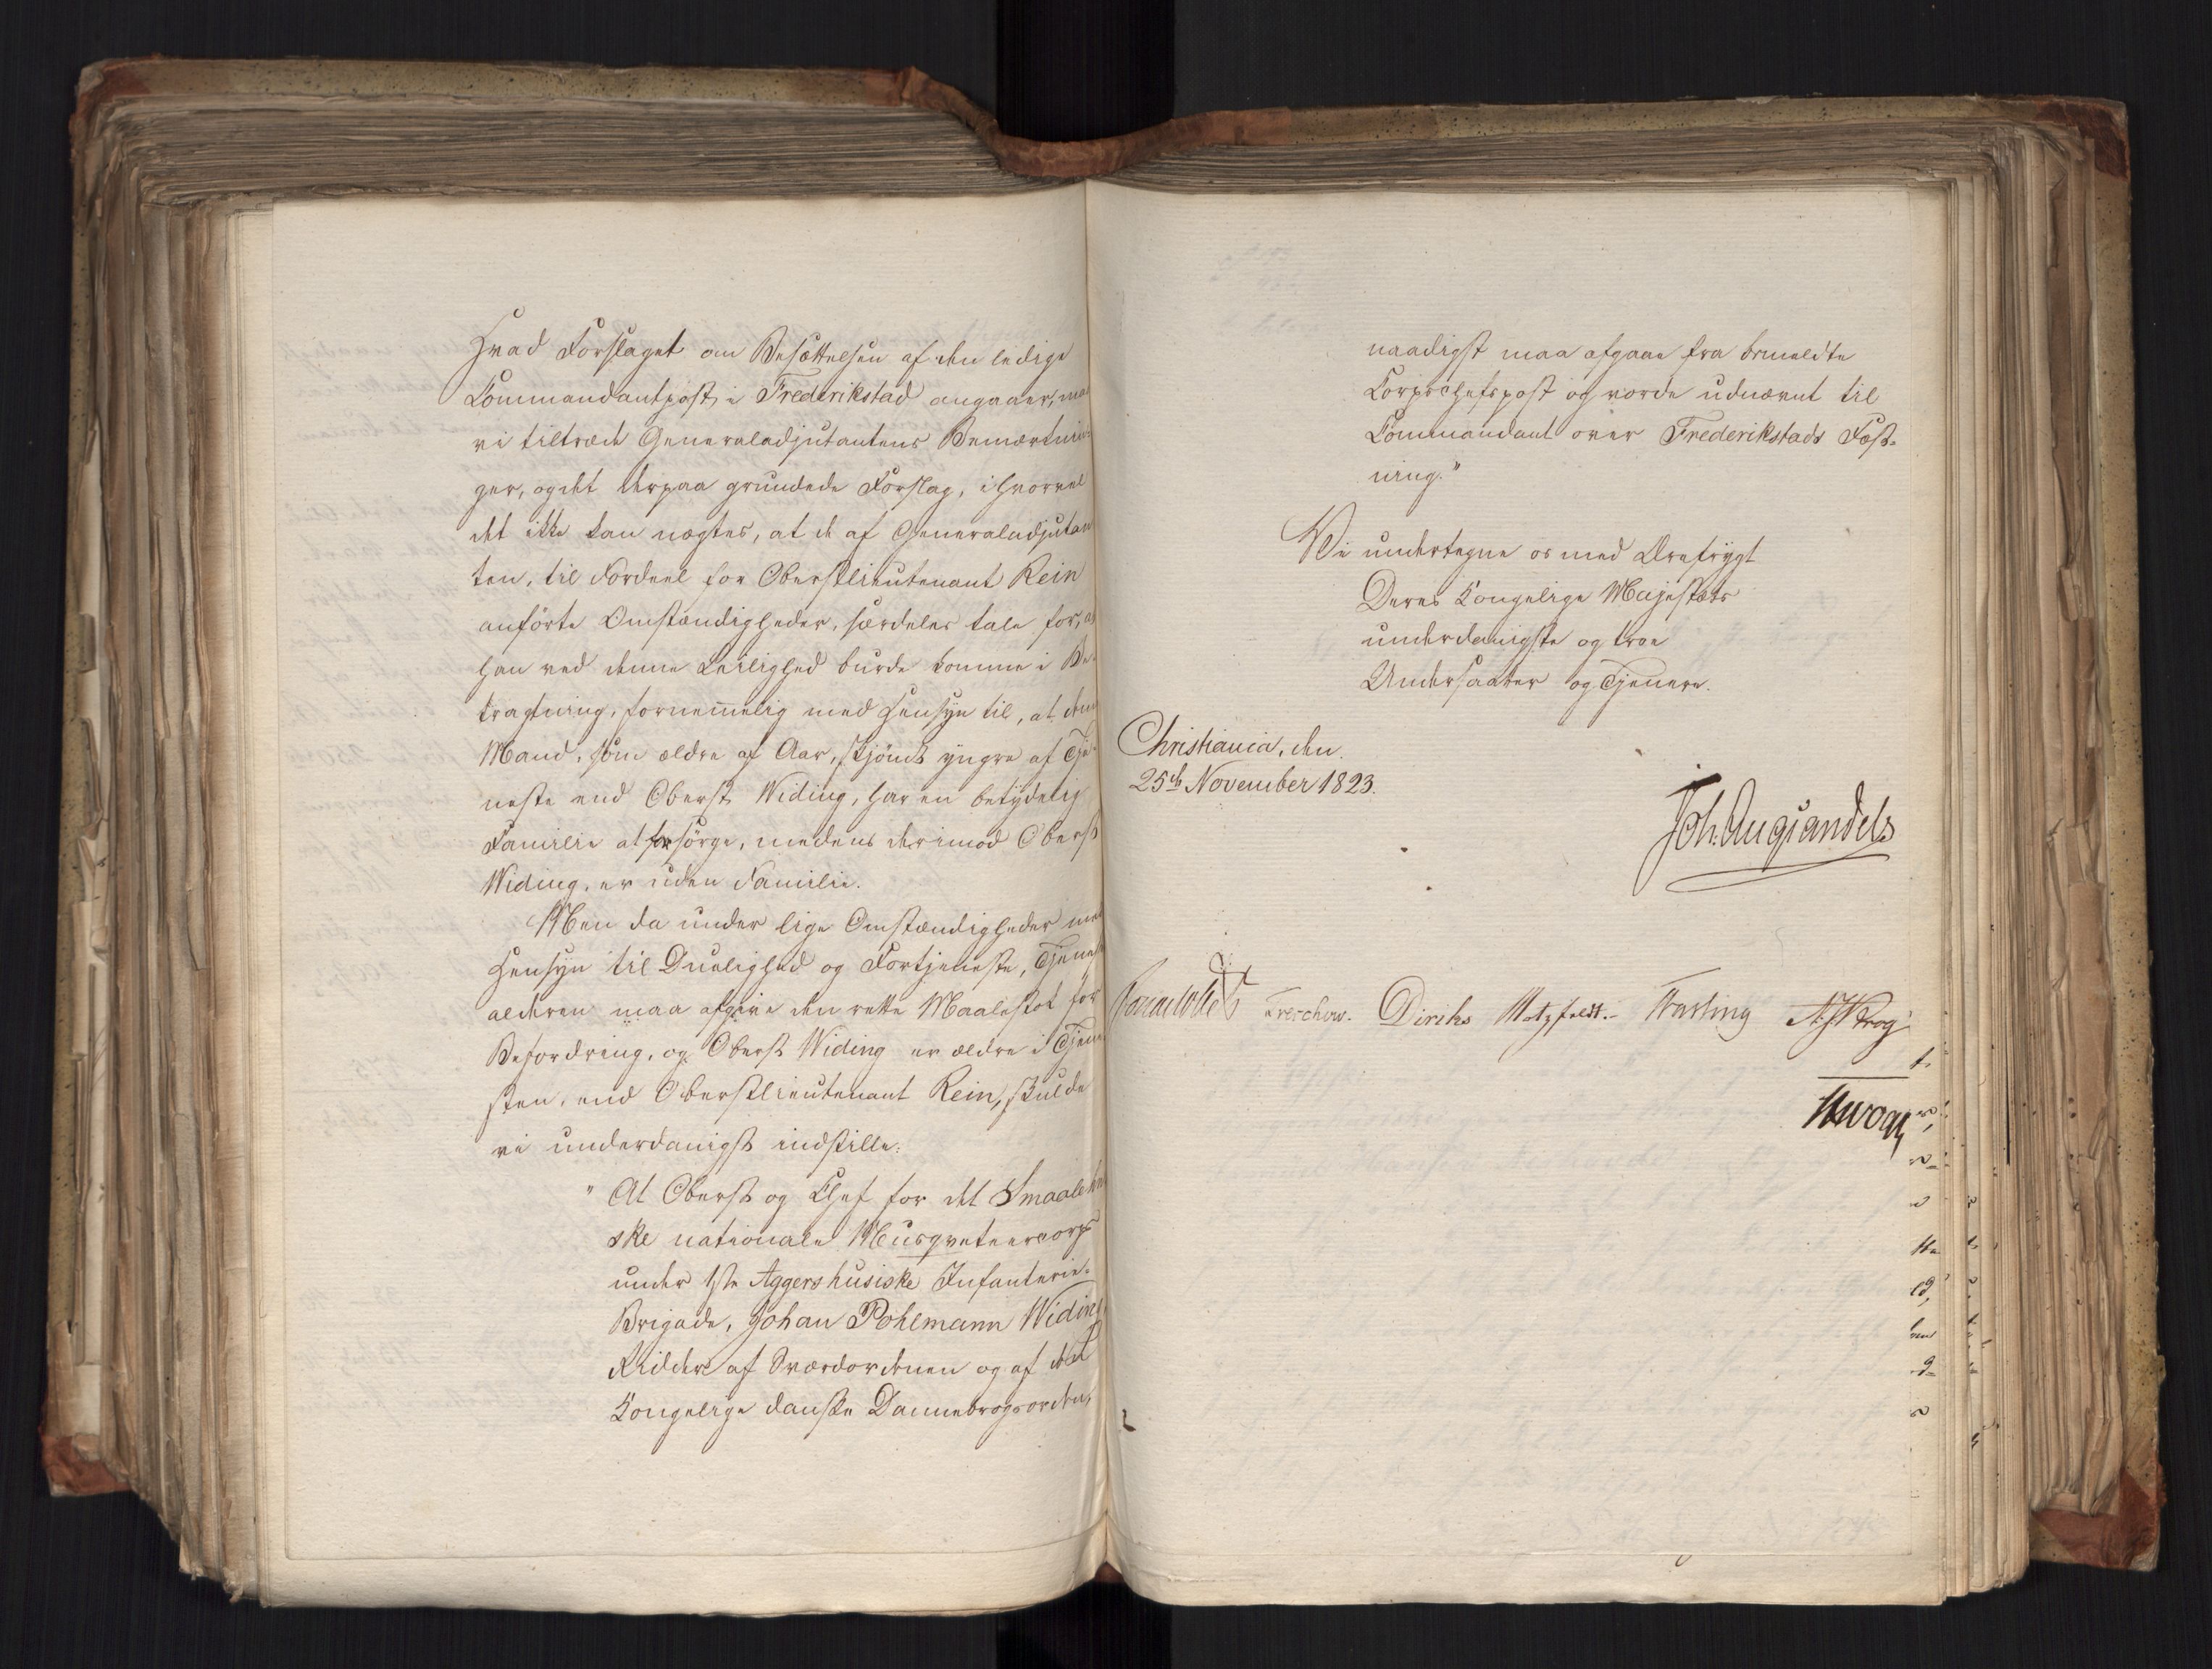 Hvad Forslaget om Besættelsen af den ledige
Commandantpost i Frederikstad angaaer, maa
vi tiltræde Generaladjutantens Bemærknin-
ger, og det derpaa grundede Forslag, i hvorvel
det ikke kan nægtes, at de af Generaladjutan
ten, til Fordeel for Oberstlieutenant Rein
anførte Omstændigheder, særdeles tale for, at
han ved denne Leilighed burde komme i Be-
tragtning, fornemmelig med Hensyn til, at denne
Mand, som ældre af Aar, skjøndt yngre af Tje-
neste end Oberst Widing, har en betydelig
Familie at forsørge, medens derimod Oberst
Widing, er uden Familie.
Men da under lige Omstændigheder med
Hensyn til Duelighed og Fortjeneste, Tjeneste
alderen maa afgive den rette Maalestok for
Befordring, og Oberst Widing er ældre i Tjene
sten, end Oberstlieutenant Rein, skulde
vi underdanigst indstille:
" At Oberst og Chef for det Smaalehn
ske nationale Musqueteercorps
under 1ste Aggershusiske Infanterie-
Brigade, Johan Pohlmann Widing
Ridder af Sværdordenen og af den
Kongelige danske Dannebrogsorden,
naadigst maa afgaae fra bemeldte
Corpschefspost og vorde udnævnt til
Commandant over Frederikstads Fæst-
ning."
Vi undertegne os med Ærefrygt
Deres Kongelige Majestæts
underdanigste og troe
Undersaatter og Tjenere.
Christiania, den
25de November 1823.
Joh. Aug. Sandels
Sommerhielm Treschow. Diriks Motzfeldt. Fasting A. J. Krog